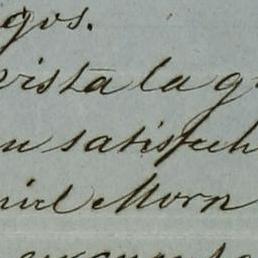 gos.
vista la g
u satisfech
niel Morn